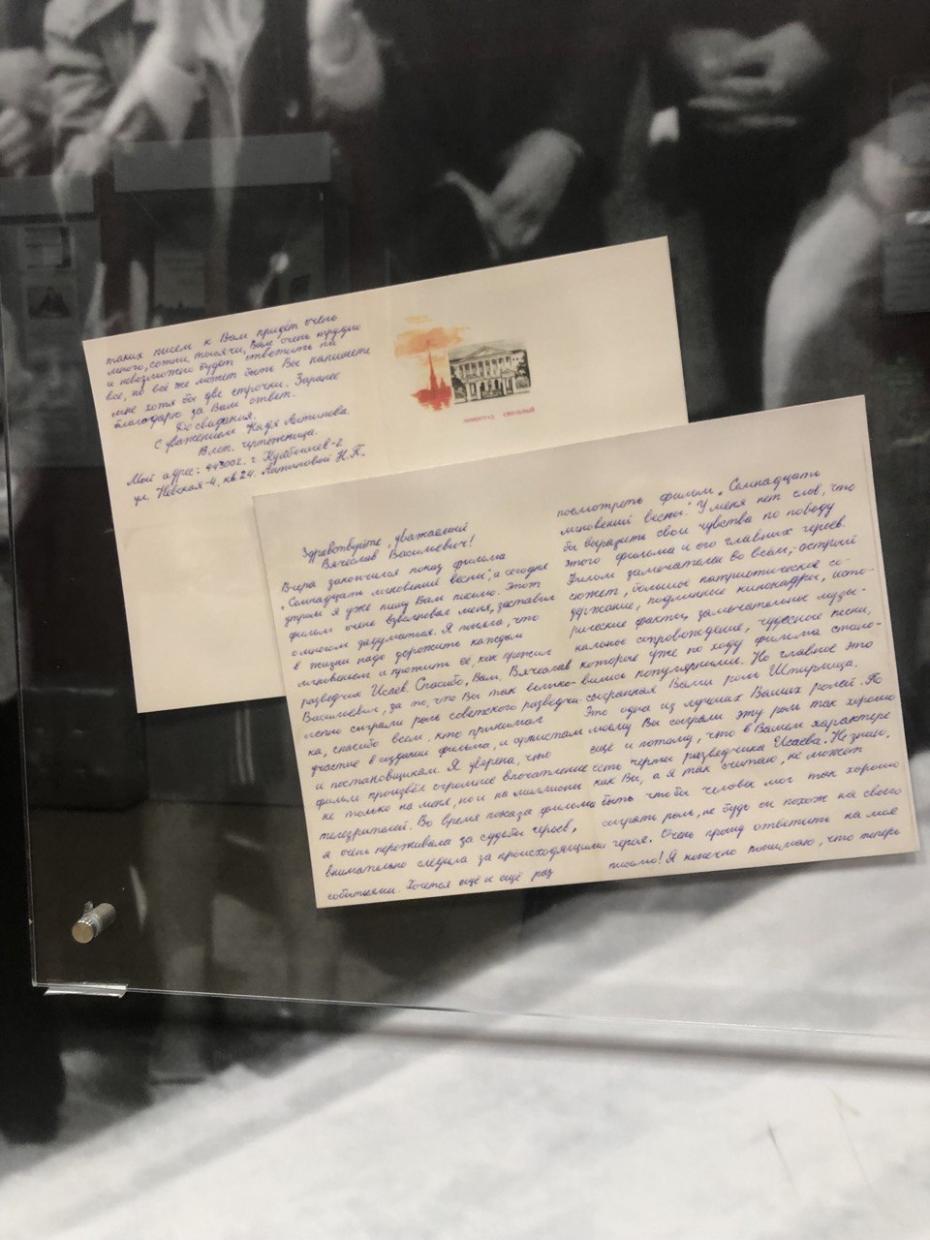 Здравствуйте, уважаемый
Вячеслав Васильевич!
Вчера закончился показ фильма
„Семнадцать мгновений весны", и сегодня
утром я уже пишу Вам письмо. Этот
фильм очень взволновал меня, заставил
о многом задуматься. Я поняла, что
в жизни надо дорожить каждым
мгновением и прожить её, как прожил
разведчик Исаев. Спасибо, Вам, Вячеслав
Васильевич, за то, что Вы так велико-
лепно сыграли роль советского разведчи-
ка, спасибо всем, кто принимал
участие в создании фильма, и артистам
и постановщикам. Я уверена, что
фильм произвёл огромное впечатление
не только на меня, но и на миллионы
телезрителей. Во время показа фильма
я очень переживала за судьбы героев,
внимательно следила за происходящими
событиями. Хочется ещё и ещё раз
посмотреть фильм „Семнадцать
мгновений весны". У меня нет слов, что
бы выразить свои чувства по поводу
этого фильма и его главных героев.
Фильм замечателен во всём; острый
сюжет, большое патриотическое со-
держание, подлинные кинокадры, исто-
рические факты, замечательное музы-
кальное сопровождение, чудесные песни,
которые уже по ходу фильма стано-
вились популярными. Но главное это
сыгранная Вами роль Штирлица.
Это одна из лучших Ваших ролей. По
моему Вы сыграли эту роль так хорошо
ещё и потому, что в Вашем характере
есть черты разведчика Исаева. Не знаю,
как Вы, а я так считаю, не может
быть чтобы человек мог так хорошо
сыграть роль, не будь он похож на своего
героя. Очень прошу ответить на моё
письмо! Я конечно понимаю, что теперь
таких писем к Вам придёт очень
много, сотни, тысячи, Вам очень трудно
и невозможно будет ответить на
все, но всё же может быть Вы напишете
мне хотя бы две строчки. Заранее
благодарю за Ваш ответ.
До свидания.
С уважением Надя Антипова.
чертёжница.
Мой адрес: г. Куйбышев-2
ул. Невская-4, кв. 24. Антиповой Н.П.